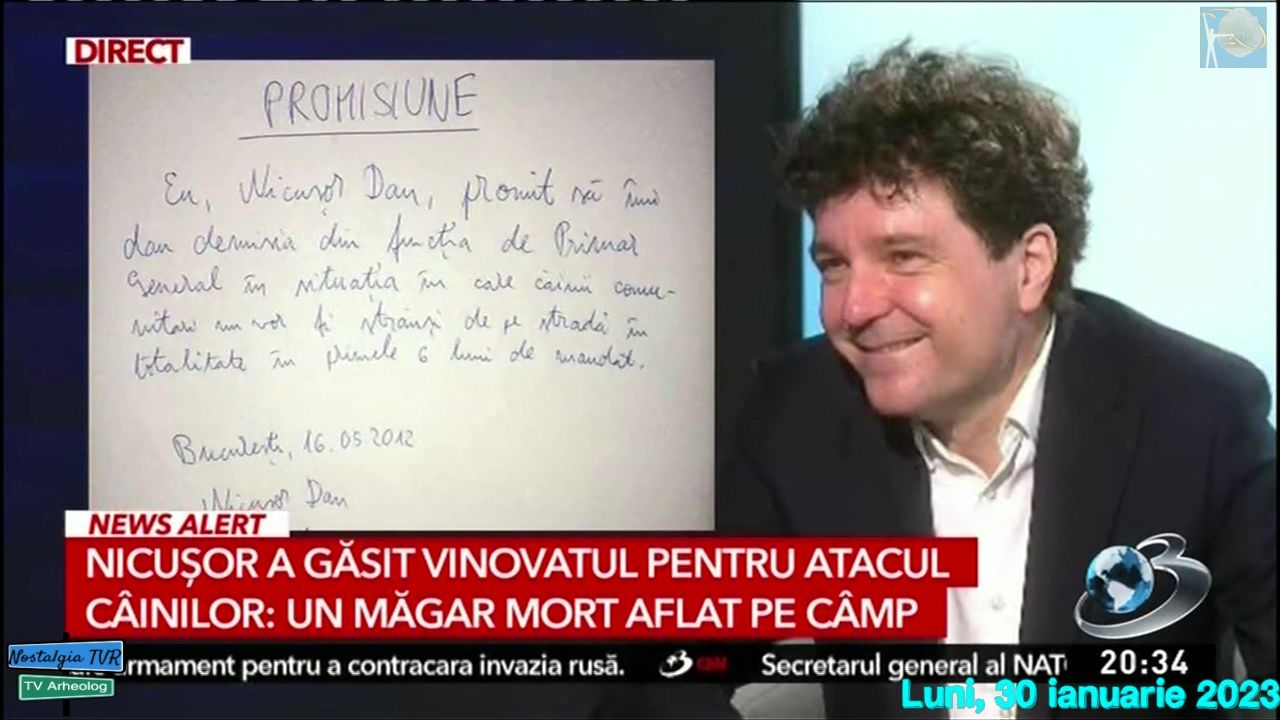 DIRECT
PROMISIUNE
Eu, Nicușor Dan, promit să îmi
dau demisia din funcția de Primar
General în situația în care câinii comu-
nitari nu vor fi strânși de pe stradă în
totalitate în primele 6 luni de mandat.
București, 16.05.2012
Nicușor Dan
NEWS ALERT
NICUȘOR A GĂSIT VINOVATUL PENTRU ATACUL
CÂINILOR: UN MĂGAR MORT AFLAT PE CÂMP
3
Nostalgia TVR
TV Arheolog
armament pentru a contracara invazia rusă. 3 CNN Secretarul general al NATO 20:34
Luni, 30 ianuarie 2023